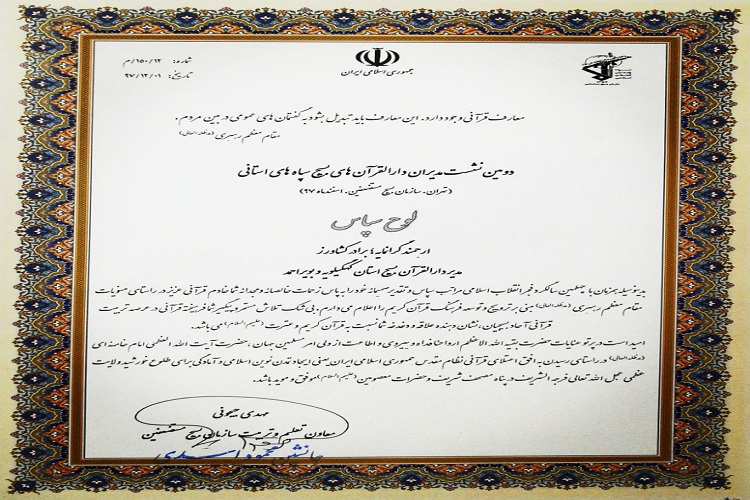 شماره: ۱۵۰/۱۲/م
تاریخ: ۹۷/۱۲/۰۱
جمهوری اسلامی ایران
معارف قرآنی وجود دارد. این معارف باید تبدیل بشود به گفتمان های عمومی در بین مردم.
مقام معظم رهبری (مدظله العالی)
دومین نشست مدیران دارالقرآن های بسیج سپاه های استانی
(تهران، سازمان بسیج مستضعفین، اسفندماه ۹۷)
لوح سپاس
ارجمند گرانمایه؛ برادر کشاورز
مدیر دارالقرآن بسیج استان کهگیلویه و بویراحمد
بدینوسیله همزمان با چهلمین سالگرد فجر انقلاب اسلامی مراتب سپاس و تقدیر صمیمانه خود را به پاس زحمات خالصانه و مجدانه شما خادم قرآنی عزیز در راستای منویات
مقام معظم رهبری (مدظله العالی) مبنی بر ترویج و توسعه فرهنگ قرآن کریم را اعلام می دارم. بی شک تلاش مستمر و پیگیر شما فرهیخته قرآنی در عرصه تربیت
قرآنی آحاد بسیجیان، نشان دهنده علاقه و دغدغه شما نسبت به قرآن کریم و عترت (علیهم السلام) می باشد.
امید است در پرتو عنایات حضرت بقیه الله الاعظم ارواحنا فداه و پیروی و اطاعت از ولی امر مسلمین جهان، حضرت آیت الله العظمی امام خامنه ای
(مدظله العالی) در راستای رسیدن به افق اعتلای قرآنی نظام مقدس جمهوری اسلامی ایران یعنی ایجاد تمدن نوین اسلامی و آمادگی برای طلوع خورشید ولایت
عظمی عجل الله تعالی فرجه الشریف در پناه مصحف شریف و حضرات معصومین (علیهم السلام) موفق و موید باشد.
مهدی
معاون تعلیم و تربیت سازمان بسیج مستضعفین
جانشین محمود